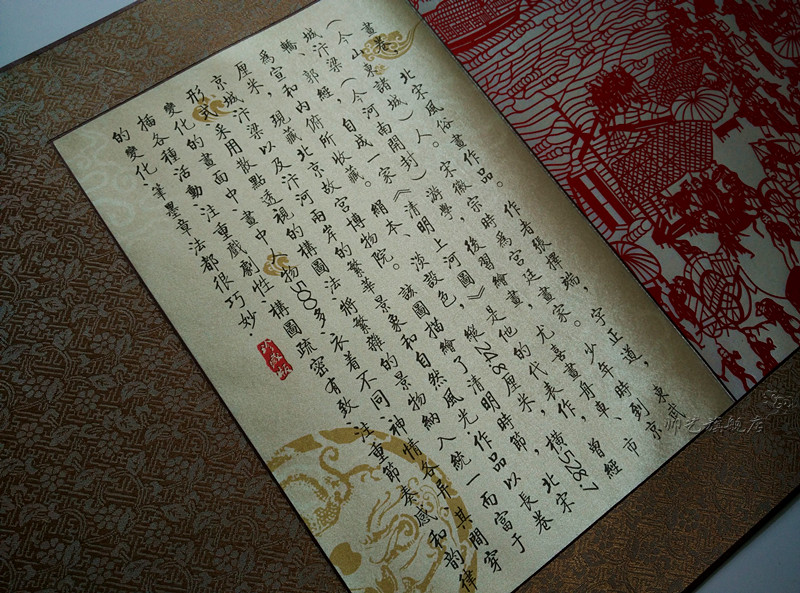 畫卷、北宋風俗畫作品。作者張擇端，字正道，東武
（今山東諸城）人。宋徽宗時為宮廷畫家。少年時到京
城汴梁（今河南開封）游學，後習繪畫，尤喜畫舟、車、市
橋、郭經，自成一家。《清明上河圖》是他的代表作，曾經
為宣和內府所收藏。絹本、淡設色，縱24.8厘米，橫528.7
厘米，現藏北京故宮博物院。該圖描繪了清明時節，北宋
京城汴梁以及汴河兩岸的繁華景象和自然風光作品以長卷
形式，采用散點透視的構圖法，將繁雜的景物納入統一而富于
變化的畫面中，畫中人物500多，衣着不同，神情各异，其間穿
描各種活動，注重戲劇性，構圖疏密有致，注重節奏感和韵律
的變化，筆墨章法都很巧妙。
珍藏版
帅艺旗舰店